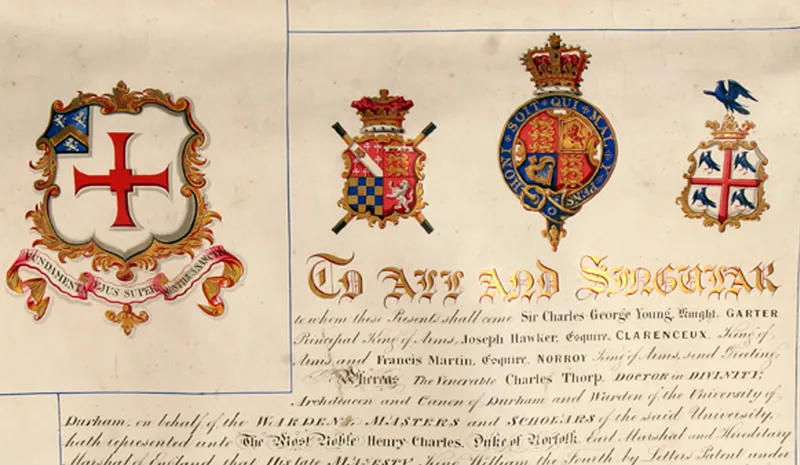 FUNDAMENTA EJUS SUPER MONTIBUS SANCTIS
HONI SOIT QUI MAL Y PENS
To All And Singular
to whom these Presents shall come Sir Charles George Young, Knight, GARTER
Principal King of Arms, Joseph Hawker, Esquire, CLARENCEUX, King of
Arms, and Francis Martin, Esquire, NORROY King of Arms, send Greeting:
Whereas The Venerable Charles Thorp, DOCTOR in DIVINITY;
Archdeacon and Canon of Durham and Warden of the University of
Durham, on behalf of the WARDEN, MASTERS and SCHOLARS of the said University,
hath represented unto The Most Noble Henry Charles, Duke of Norfolk, Earl Marshal and Hereditary
Marshal of England, that His late MAJESTY King William the Fourth by Letters Patent under